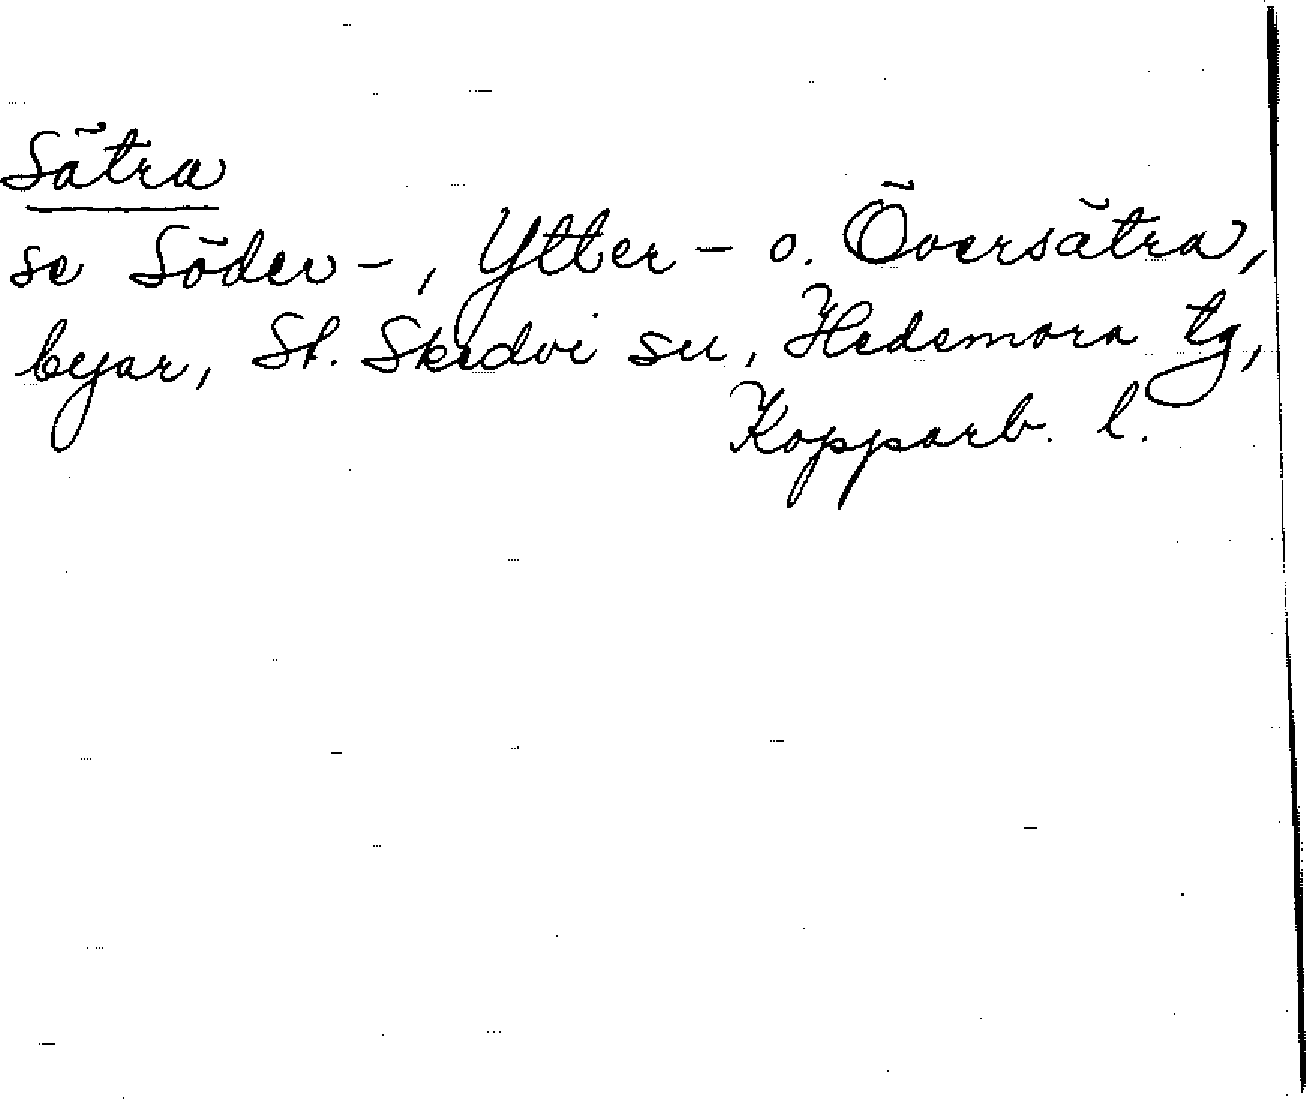 Sätra
se Söder-, Ytter- o. Översätra,
byar, St. Skedvi sn, Hedemora tg,
Kopparb. l.